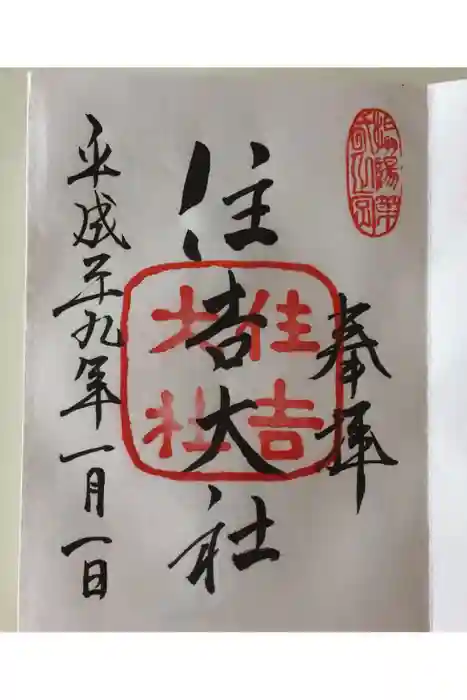 奉拝
住吉大社
住吉
大社
平成二十九年一月一日